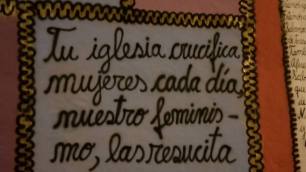 Tu iglesia crucifica
mujeres cada día,
nuestro feminis-
mo, las resucita